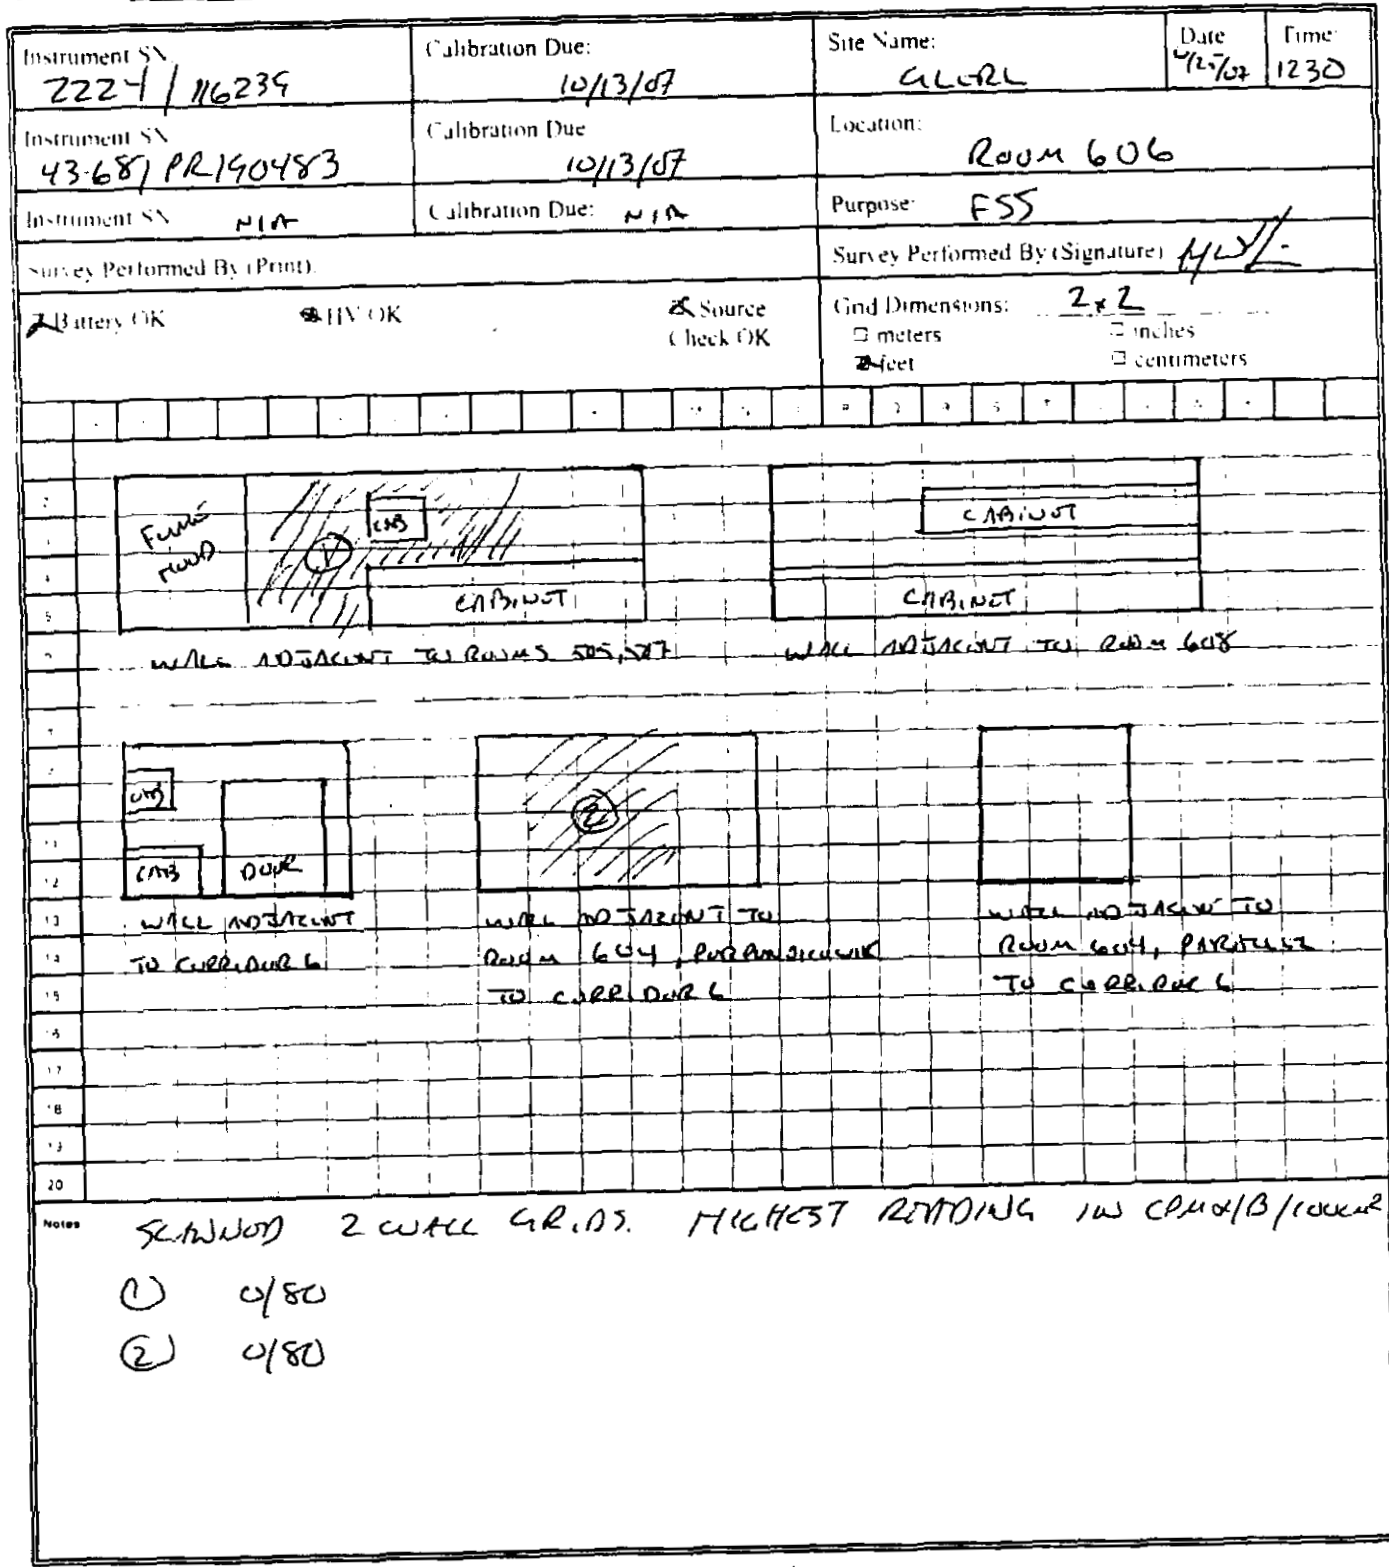 Instrument SN 2224 / 116239
Calibration Due: 10/13/07
Site Name: GLERL
Date
Time: 1230
Instrument SN 43-68 / PR190483
Calibration Due 10/13/07
Location: ROOM 606
Instrument SN N/A
Calibration Due: N/A
Purpose: FSS
Survey Performed By (Print):
Survey Performed By (Signature)
Battery OK
HV OK
Source Check OK
Grid Dimensions: 2 x 2
meters
inches
feet
centimeters
FUME HOOD
CAB
1
CABINET
CABINET
CABINET
WALL ADJACENT TO ROOMS 505, 507
WALL ADJACENT TO ROOM 608
CAB
CAB
DOOR
2
WALL ADJACENT
TO CORRIDOR 6
WALL ADJACENT TO
ROOM 604, PERPENDICULAR
TO CORRIDOR 6
WALL ADJACENT TO
ROOM 604, PARALLEL
TO CORRIDOR 6
12
13
15
17
18
20
Notes
SCANNED 2 WALL GRIDS. HIGHEST READING IN CPM α/B/100cm2
1 0/80
2 0/80